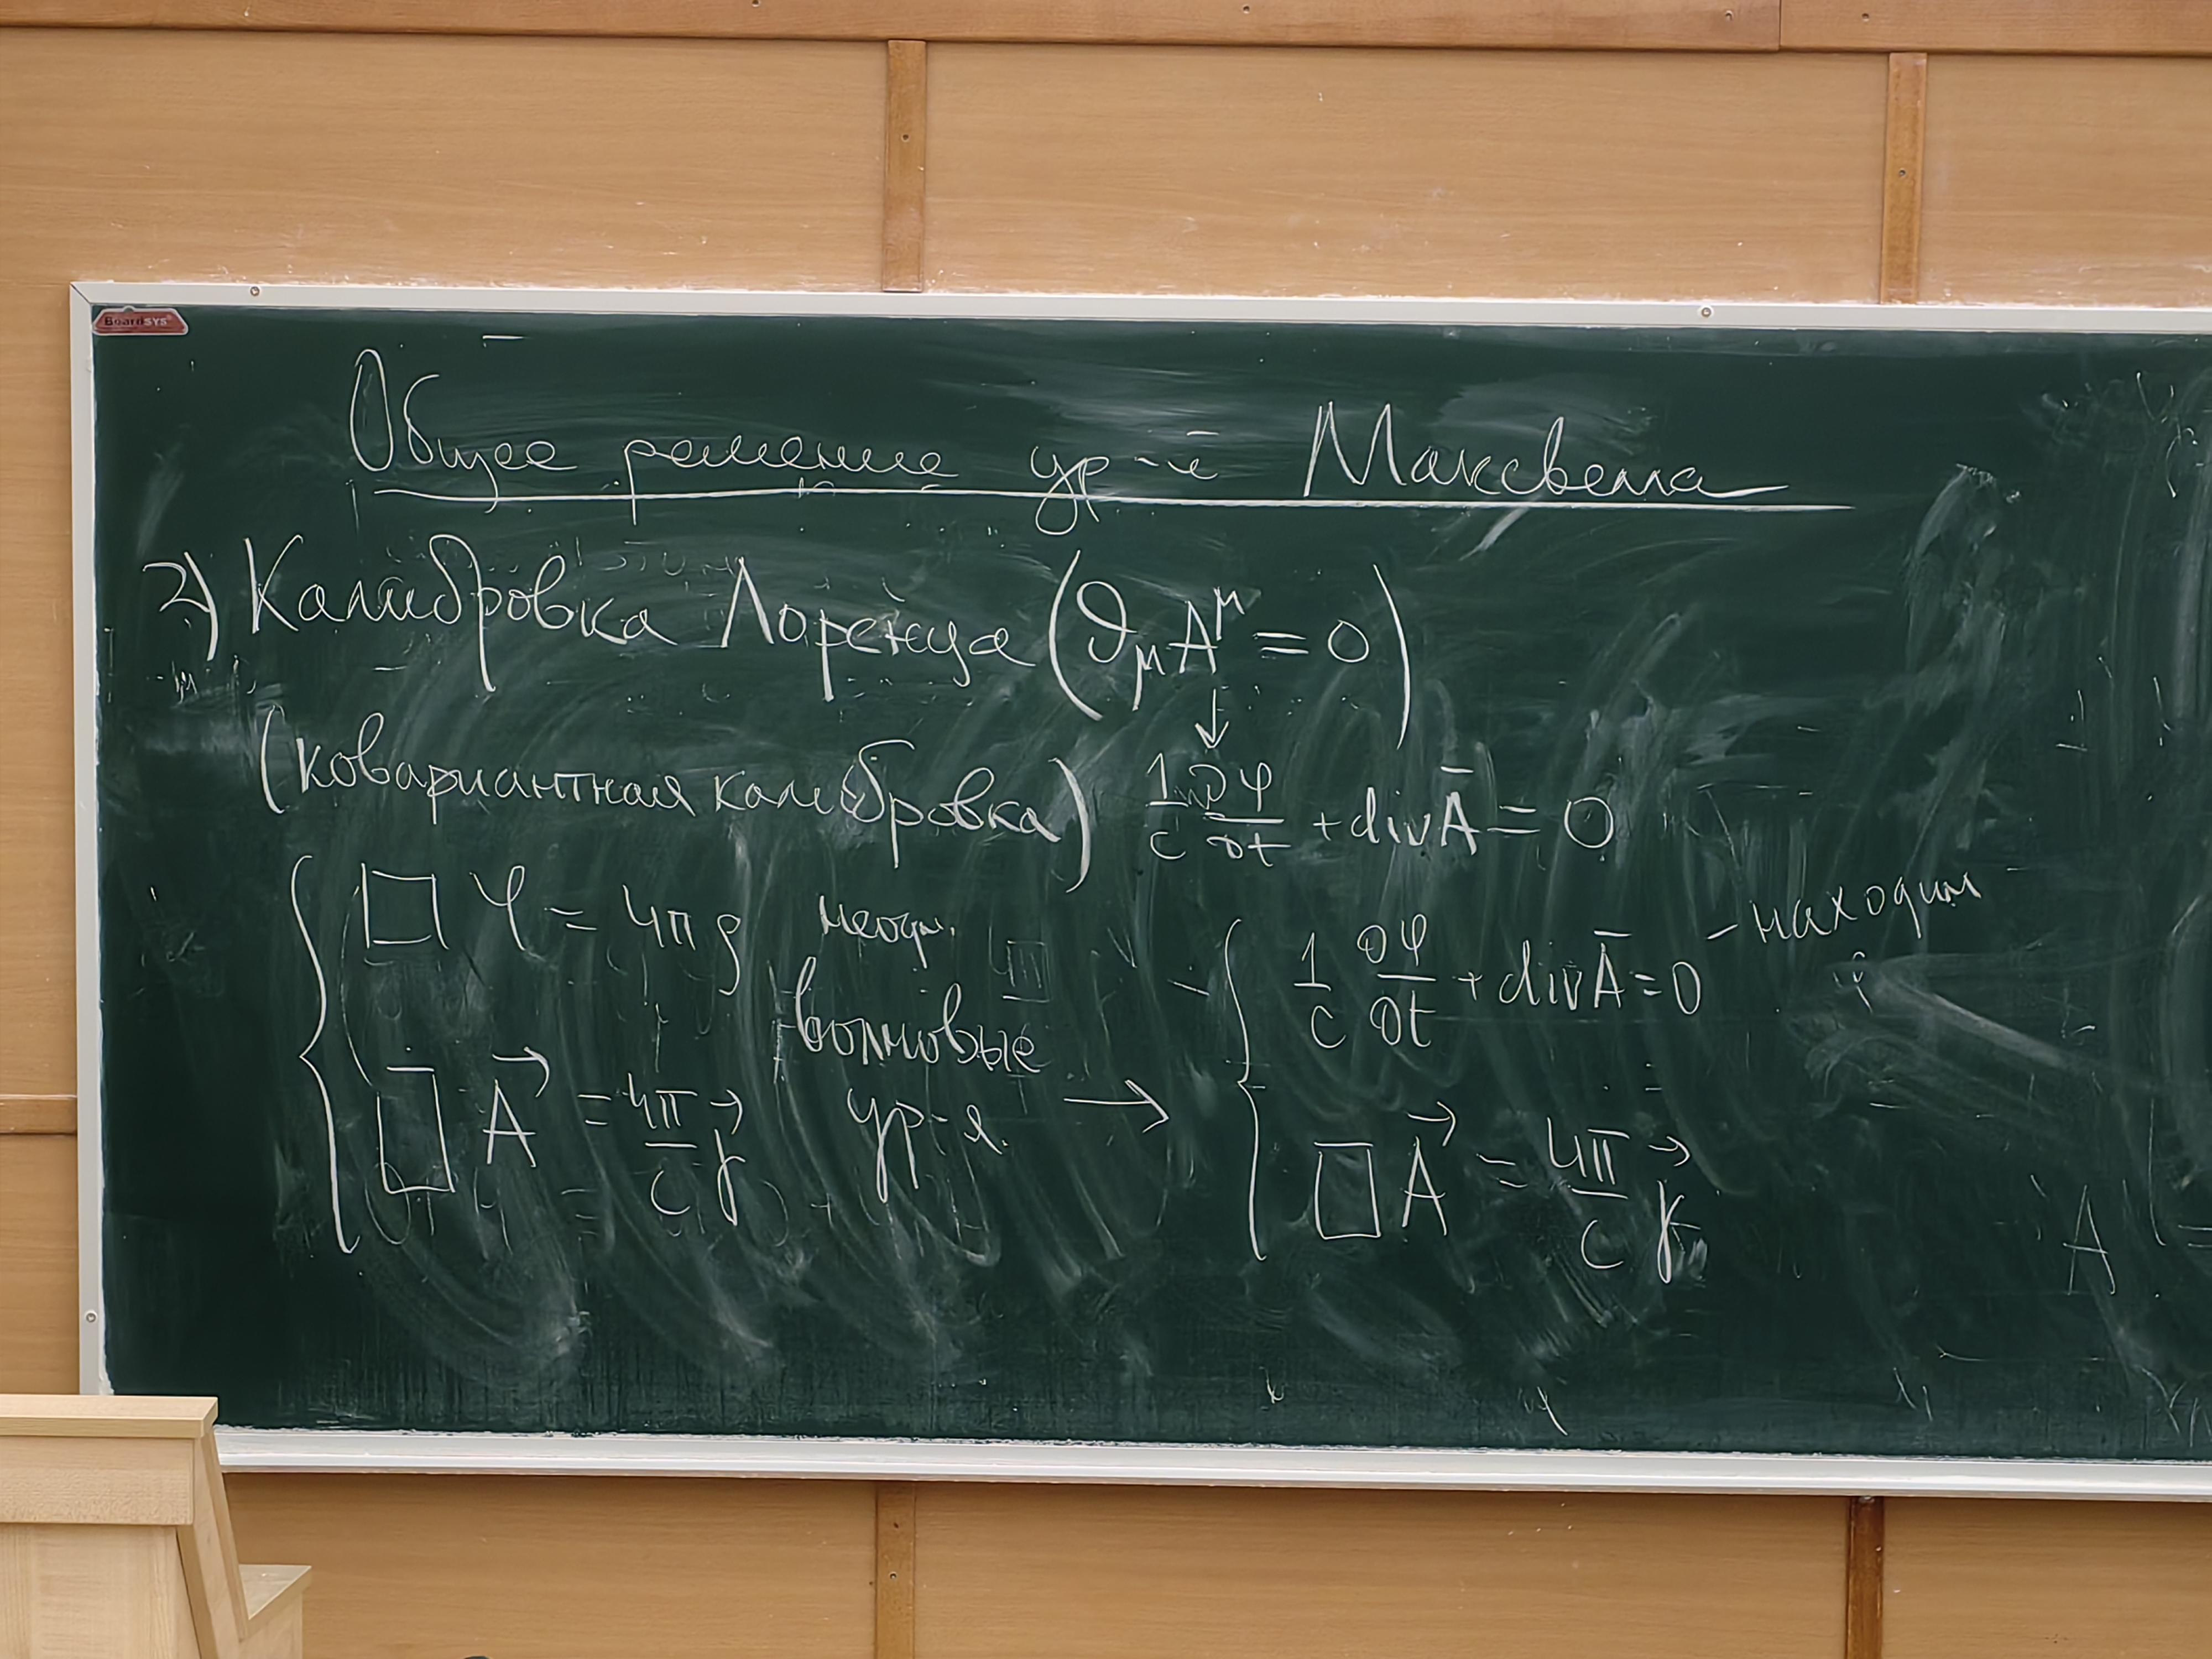 BoardSYS
Общее решение ур-й Максвелла
2) Калибровка Лоренца (∂_μ A^μ = 0)
↓
(ковариантная калибровка) 1/c ∂φ/∂t + div Ā = 0
□ φ = 4πρ неодн.
волновые
□ A⃗ = 4π/c j⃗ ур-я. →
1/c ∂φ/∂t + div Ā = 0 - находим
φ
□ A⃗ = 4π/c j⃗
A